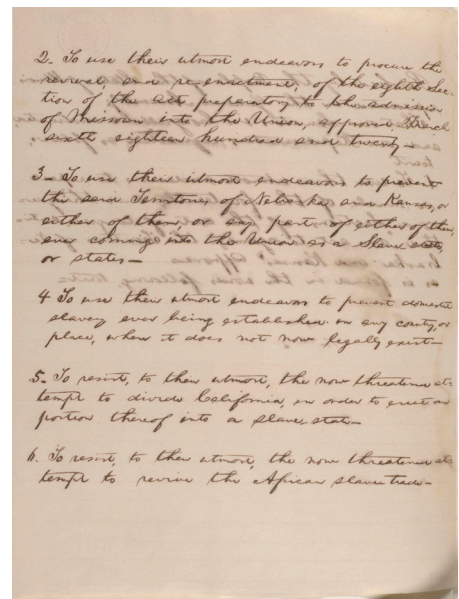 2 - To use their utmost endeavors to procure the
revival, and re-enactment, of the eighth Sec-
tion of the act preparatory to the admission
of Missouri into the Union, approved March
sixth eighteen hundred and twenty -
3 - To use their utmost endeavors to prevent
the said Territories of Nebraska and Kansas, or
either of them, or any part of either of them,
ever coming into the Union as a Slave state,
or states -
4 To use their utmost endeavors to prevent domestic
slavery ever being established in any county, or
place, where it does not now legally exist -
5. To resist, to their utmost, the now threatened at-
tempt to divide California, in order to erect a
portion thereof into a slave state -
6. To resist, to their utmost, the now threatened at-
tempt to revive the African slave trade -